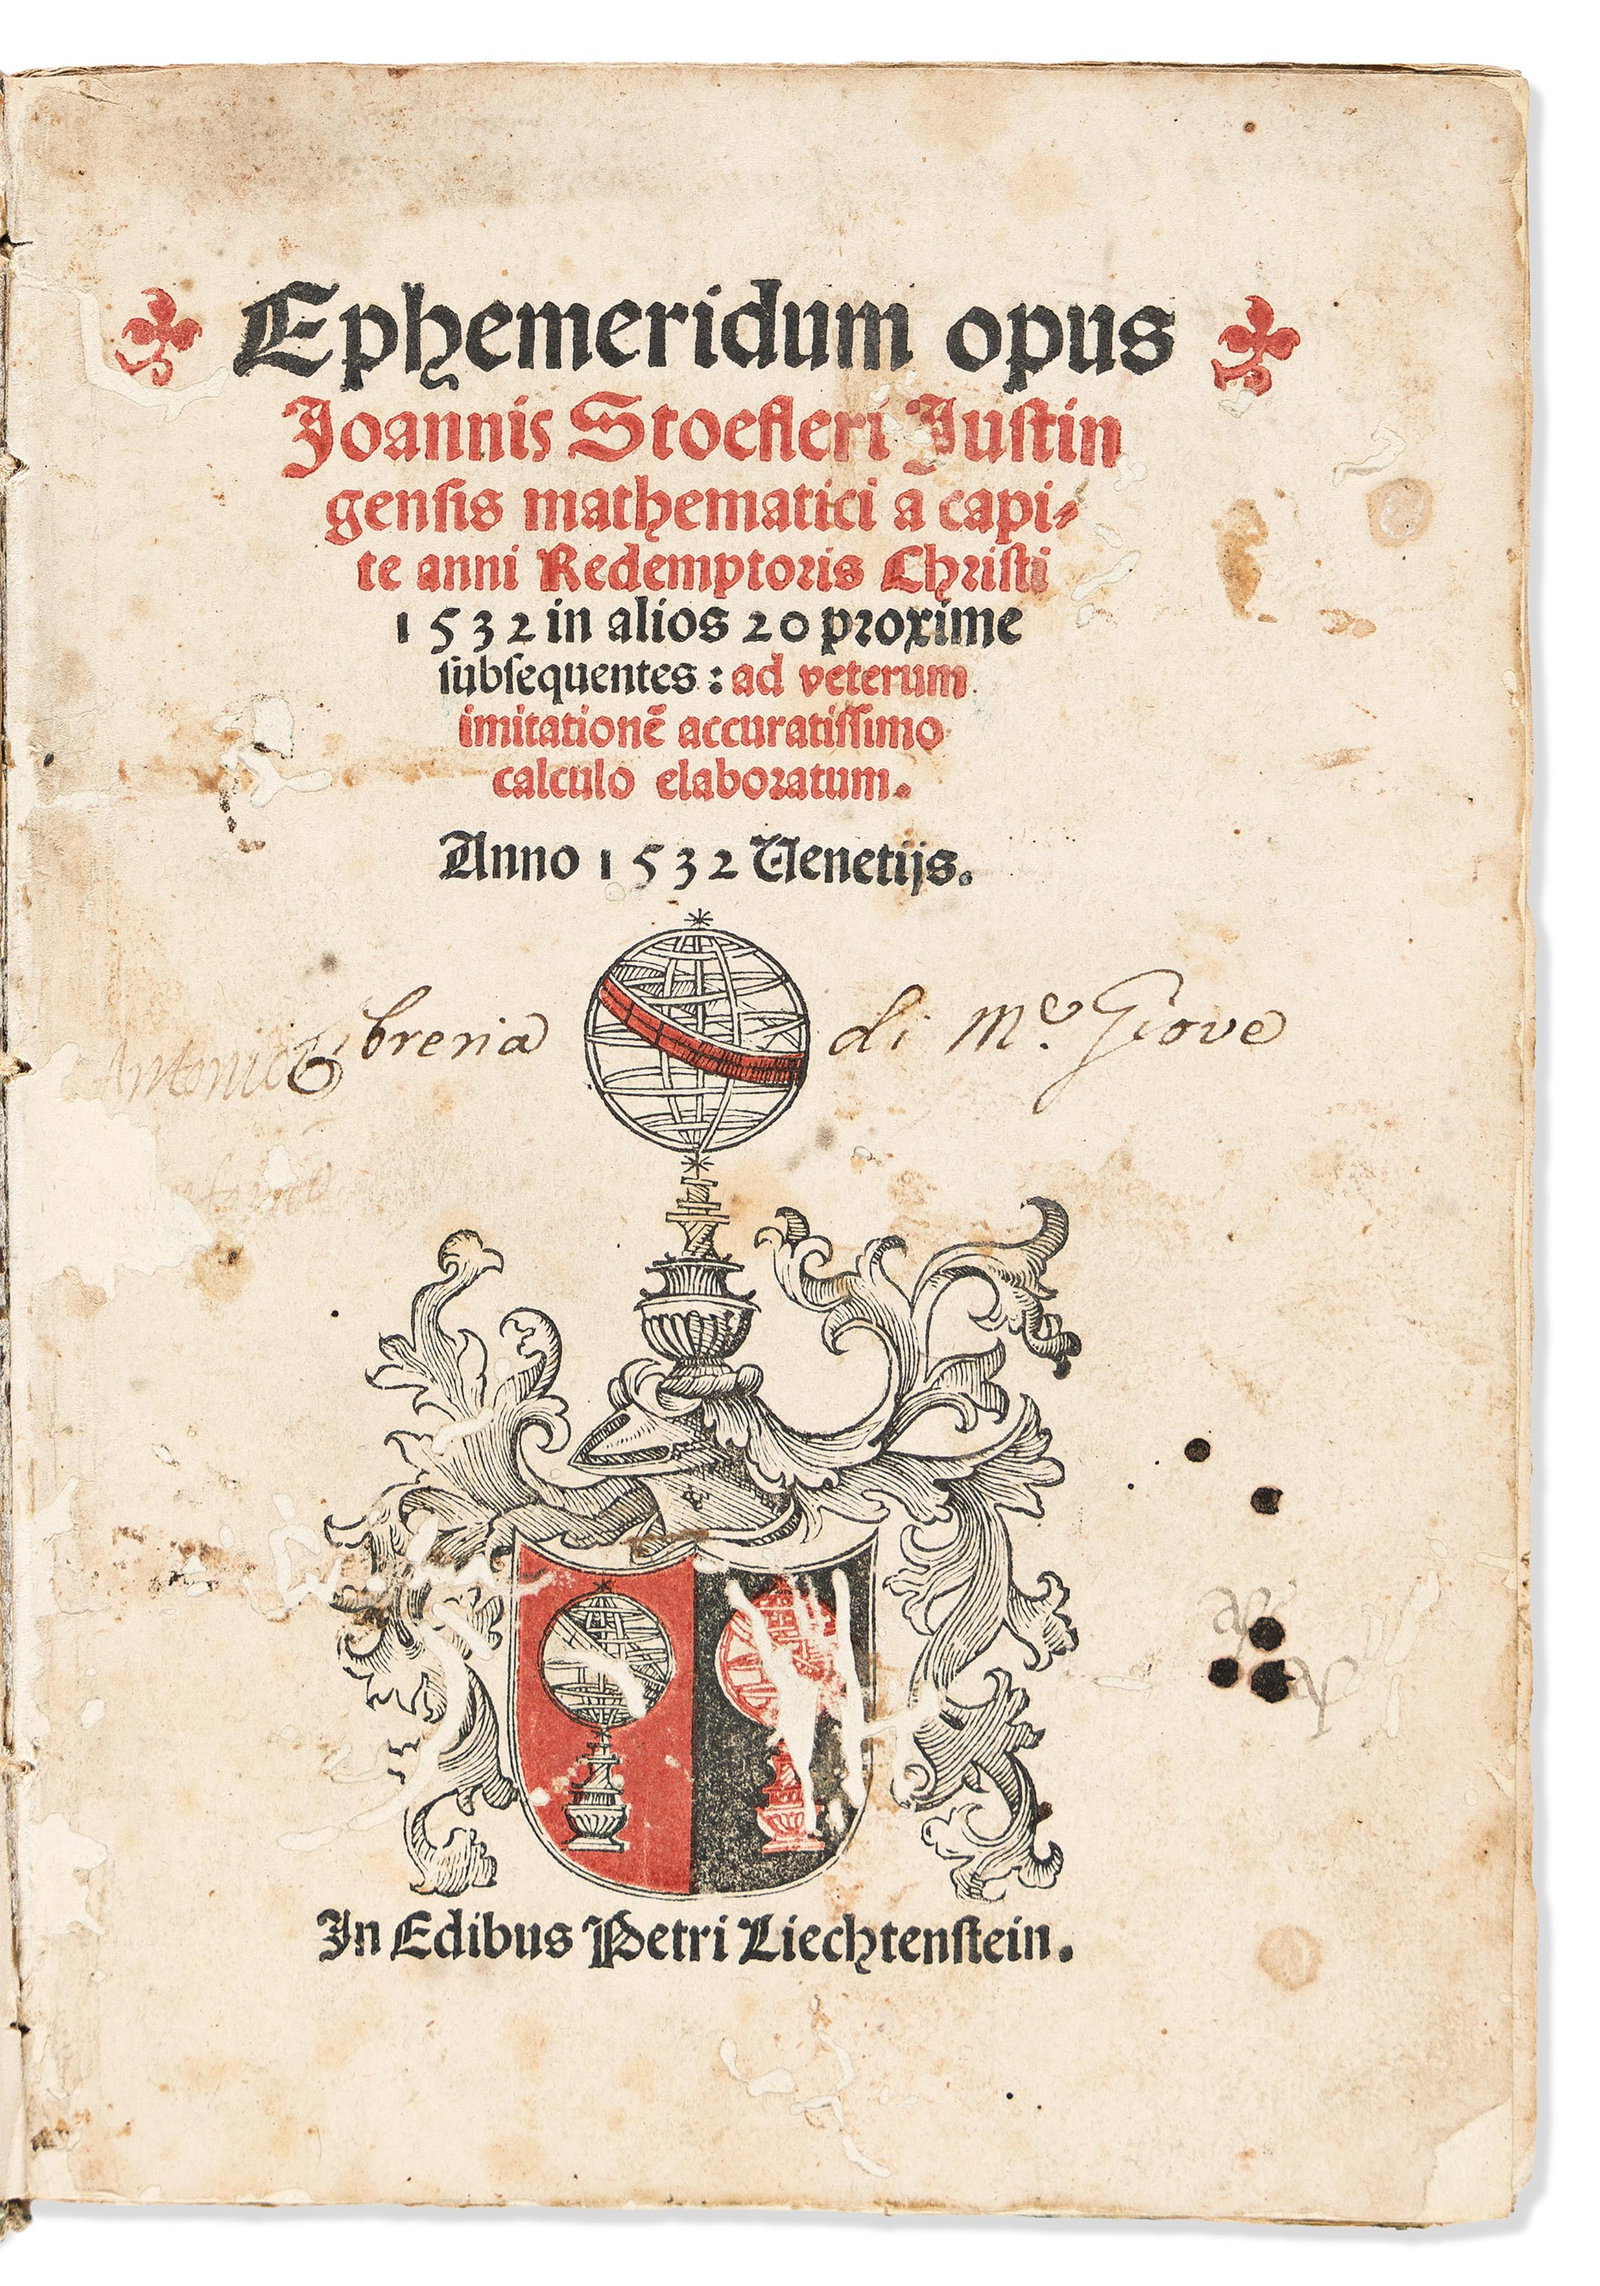 Ephemeridum opus
Joannis Stoefleri Justin
gensis mathematici a capi-
te anni Redemptoris Christi
1532 in alios 20 proxime
subsequentes: ad veterum
imitationē accuratissimo
calculo elaboratum.
Anno 1532 Venetijs.
Libreria di Mr. Giove
Antonio
In Edibus Petri Liechtenstein.